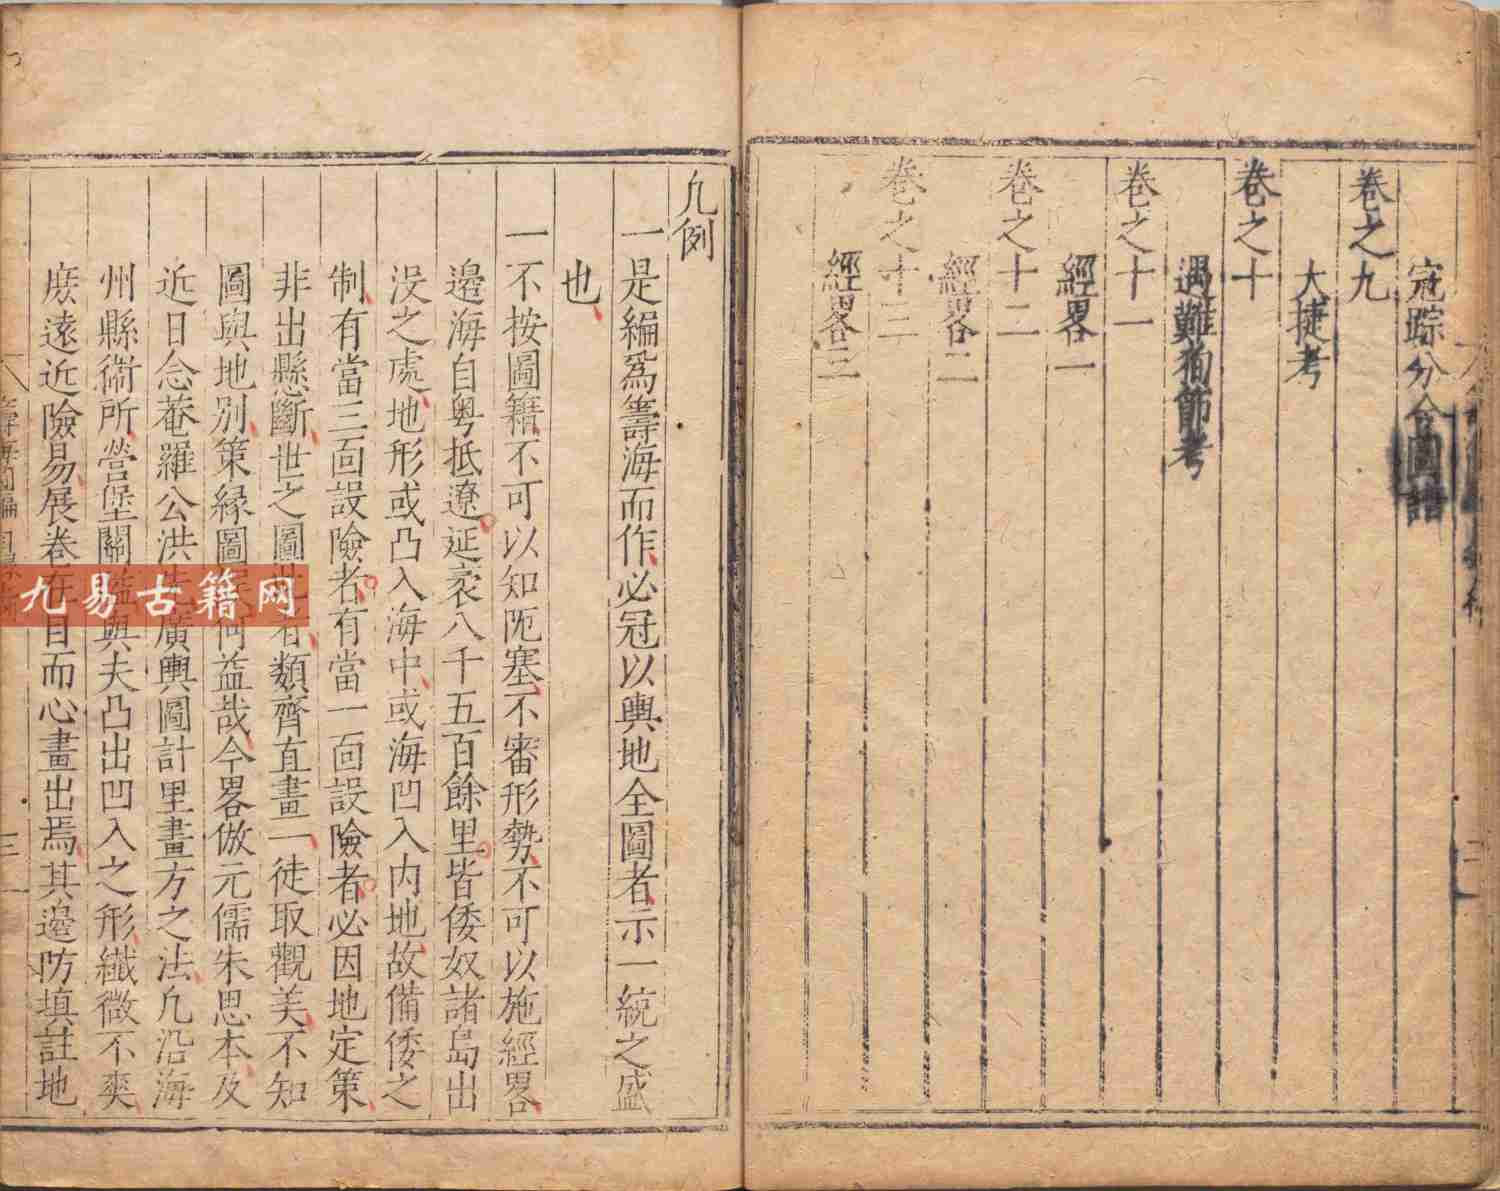 寇踪分合圖譜
卷之九
大捷考
卷之十
遇難殉節考
卷之十一
經畧一
卷之十二
經畧二
卷之十三
經畧三
凡例
一是編爲籌海而作必冠以輿地全圖者示一統之盛
也
一不按圖籍不可以知阨塞不審形勢不可以施經畧
邊海自粤抵遼延袤八千五百餘里皆倭奴諸島出
没之處地形或凸入海中或海凹入内地故備倭之
制有當三面設險者有當一面設險者必因地定策
非出懸斷世之圖 者類齊直畫一徒取觀美不知
圖與地别策縁圖 何益哉今畧倣元儒朱思本及
近日念菴羅公洪 廣輿圖計里畫方之法凡沿海
州縣衞所營堡關 與夫凸出凹入之形纖微不爽
庻遠近險易展卷在目而心畫出焉其邊防填註地
三
九易古籍网